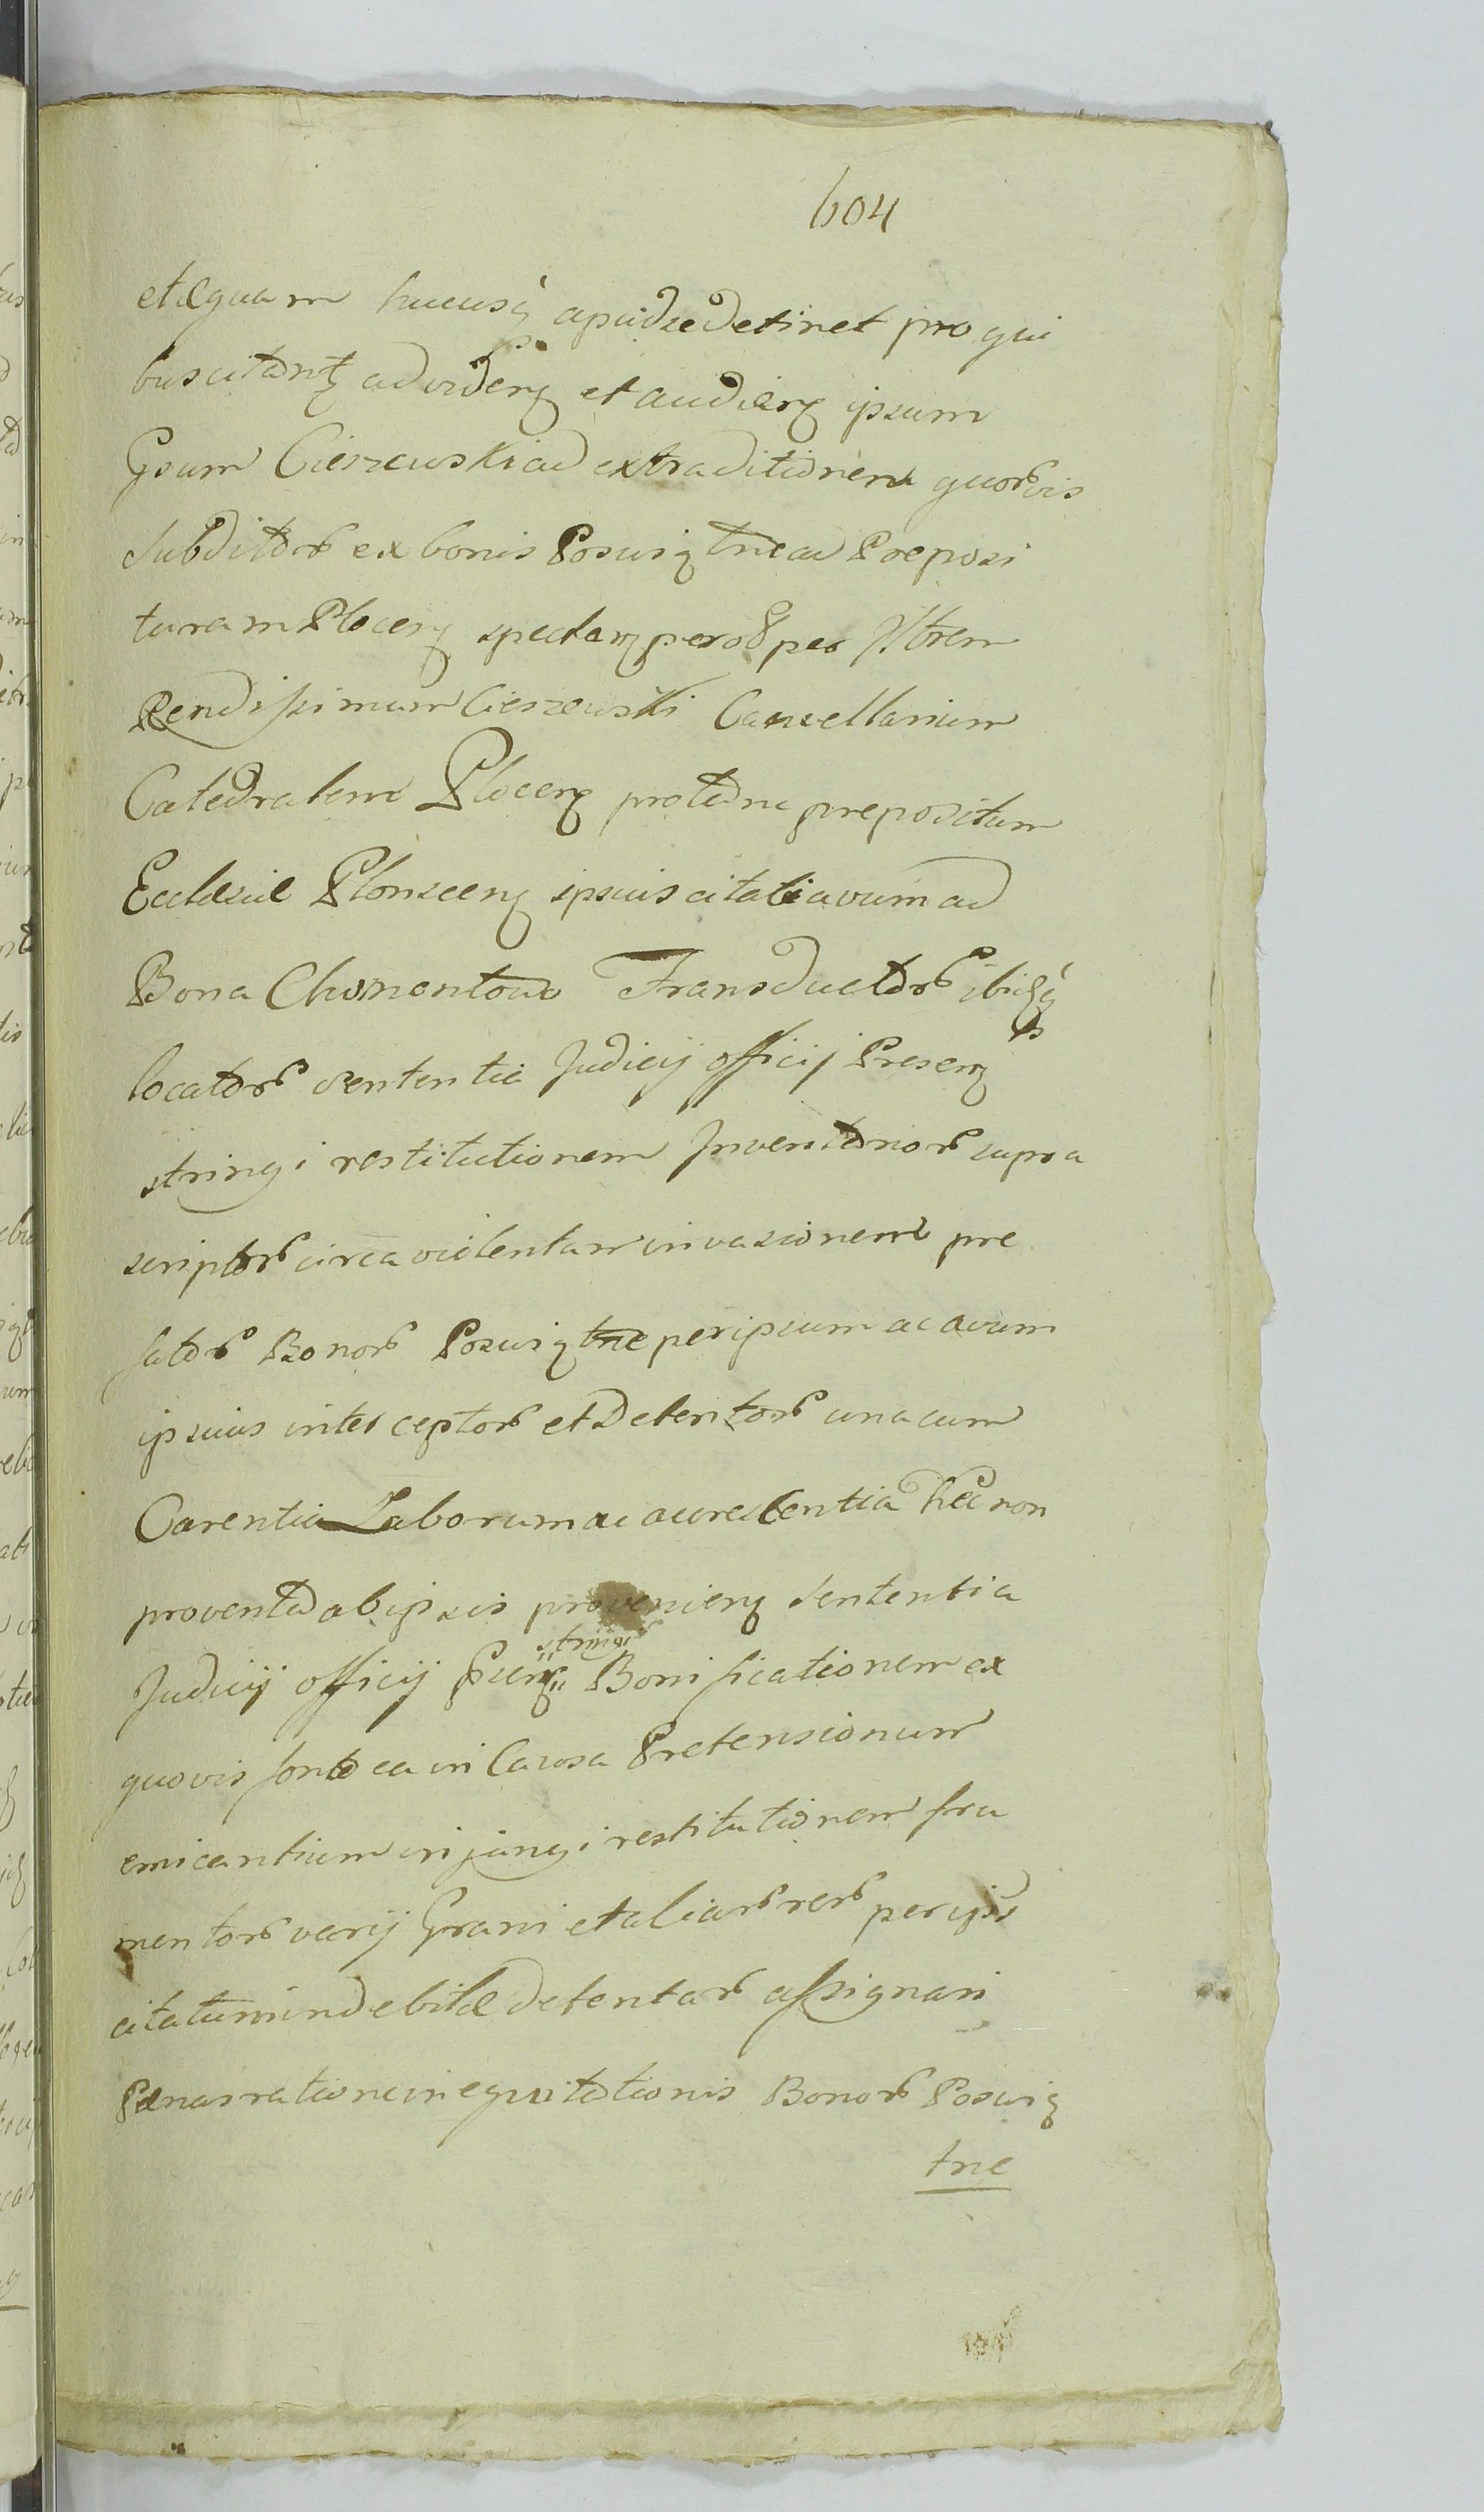 604
etæquam hucusq apud se detinet pro qui
bus citantz ad viderz et audierz ipsum
Gsum Cieszewski ad extraditionem quorvis
subditor ex bonis Poswiętne ad Preposi
turam Plocenz spectanz per olim per Illrem
Rendissimum Cieszewski Cancellarium
Catedralem Plocenz pro tunc prepositum
Ecclesiæ Plonscenz ipsius citati avum ad
Bona Chomentowo Transductor ibidq
locator sententia Judicij officij Presenz
stringi restitutionem Inventarior supra
scriptor circa violentam invasionem pre
fator Bonor Poswiętne per ipsum ac avum
ipsius interceptor et Detentor una cum
Carentia Laborum ac acrescentia nec non
proventu ab ipsis provenienz sententia
Judicij officij Psenz stringi Bonificationem ex
quovis fonte ea in Causa Pretensionum
emicantium injungi restitutionem fru
mentor varij Grani et aliar rer per ips
citatum indebitæ detentar assignari
Pænas ratione inequitationis Bonor Poswię
tne